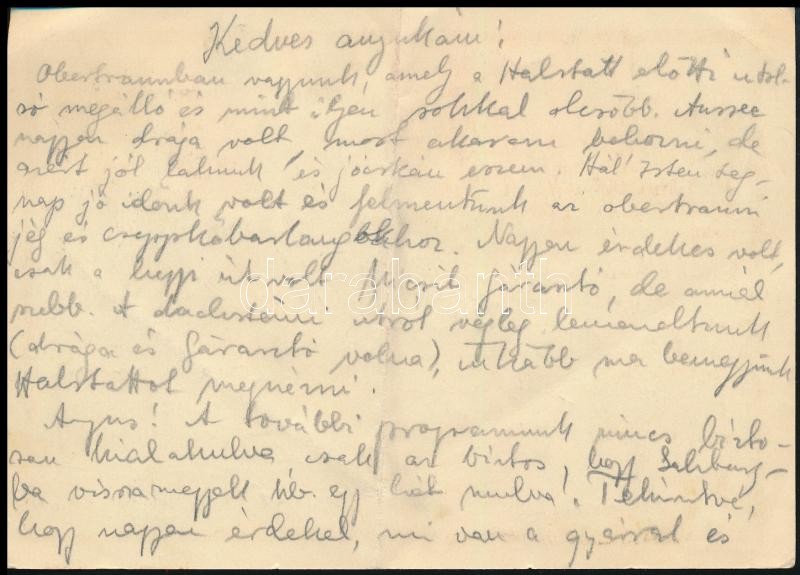 Kedves anyukám!
Obertraunban vagyunk, amely a Halstatt előtti utol-
só megálló és mint ilyen sokkal olcsóbb. Aussee
nagyon drága volt, most akarom behozni, de
azért jól lakunk és jócskán eszem. Hál' Isten teg-
nap jó időnk volt és felmentünk az obertrauni
jég és cseppkőbarlangokhoz. Nagyon érdekes volt,
csak a hegyi út volt kicsit fárasztó, de annál
szebb. A dachsteini útról végleg lemondtunk
(drága és fárasztó volna), inkább ma bemegyünk
Halstattot megnézni.
Anyus! A további programunk nincs bizto-
san kialakulva csak az biztos, hogy Salzburg-
ba visszamegyek kb. egy hét mulva. Tekintve,
hogy nagyon érdekel, mi van a gyárral és
darabanth